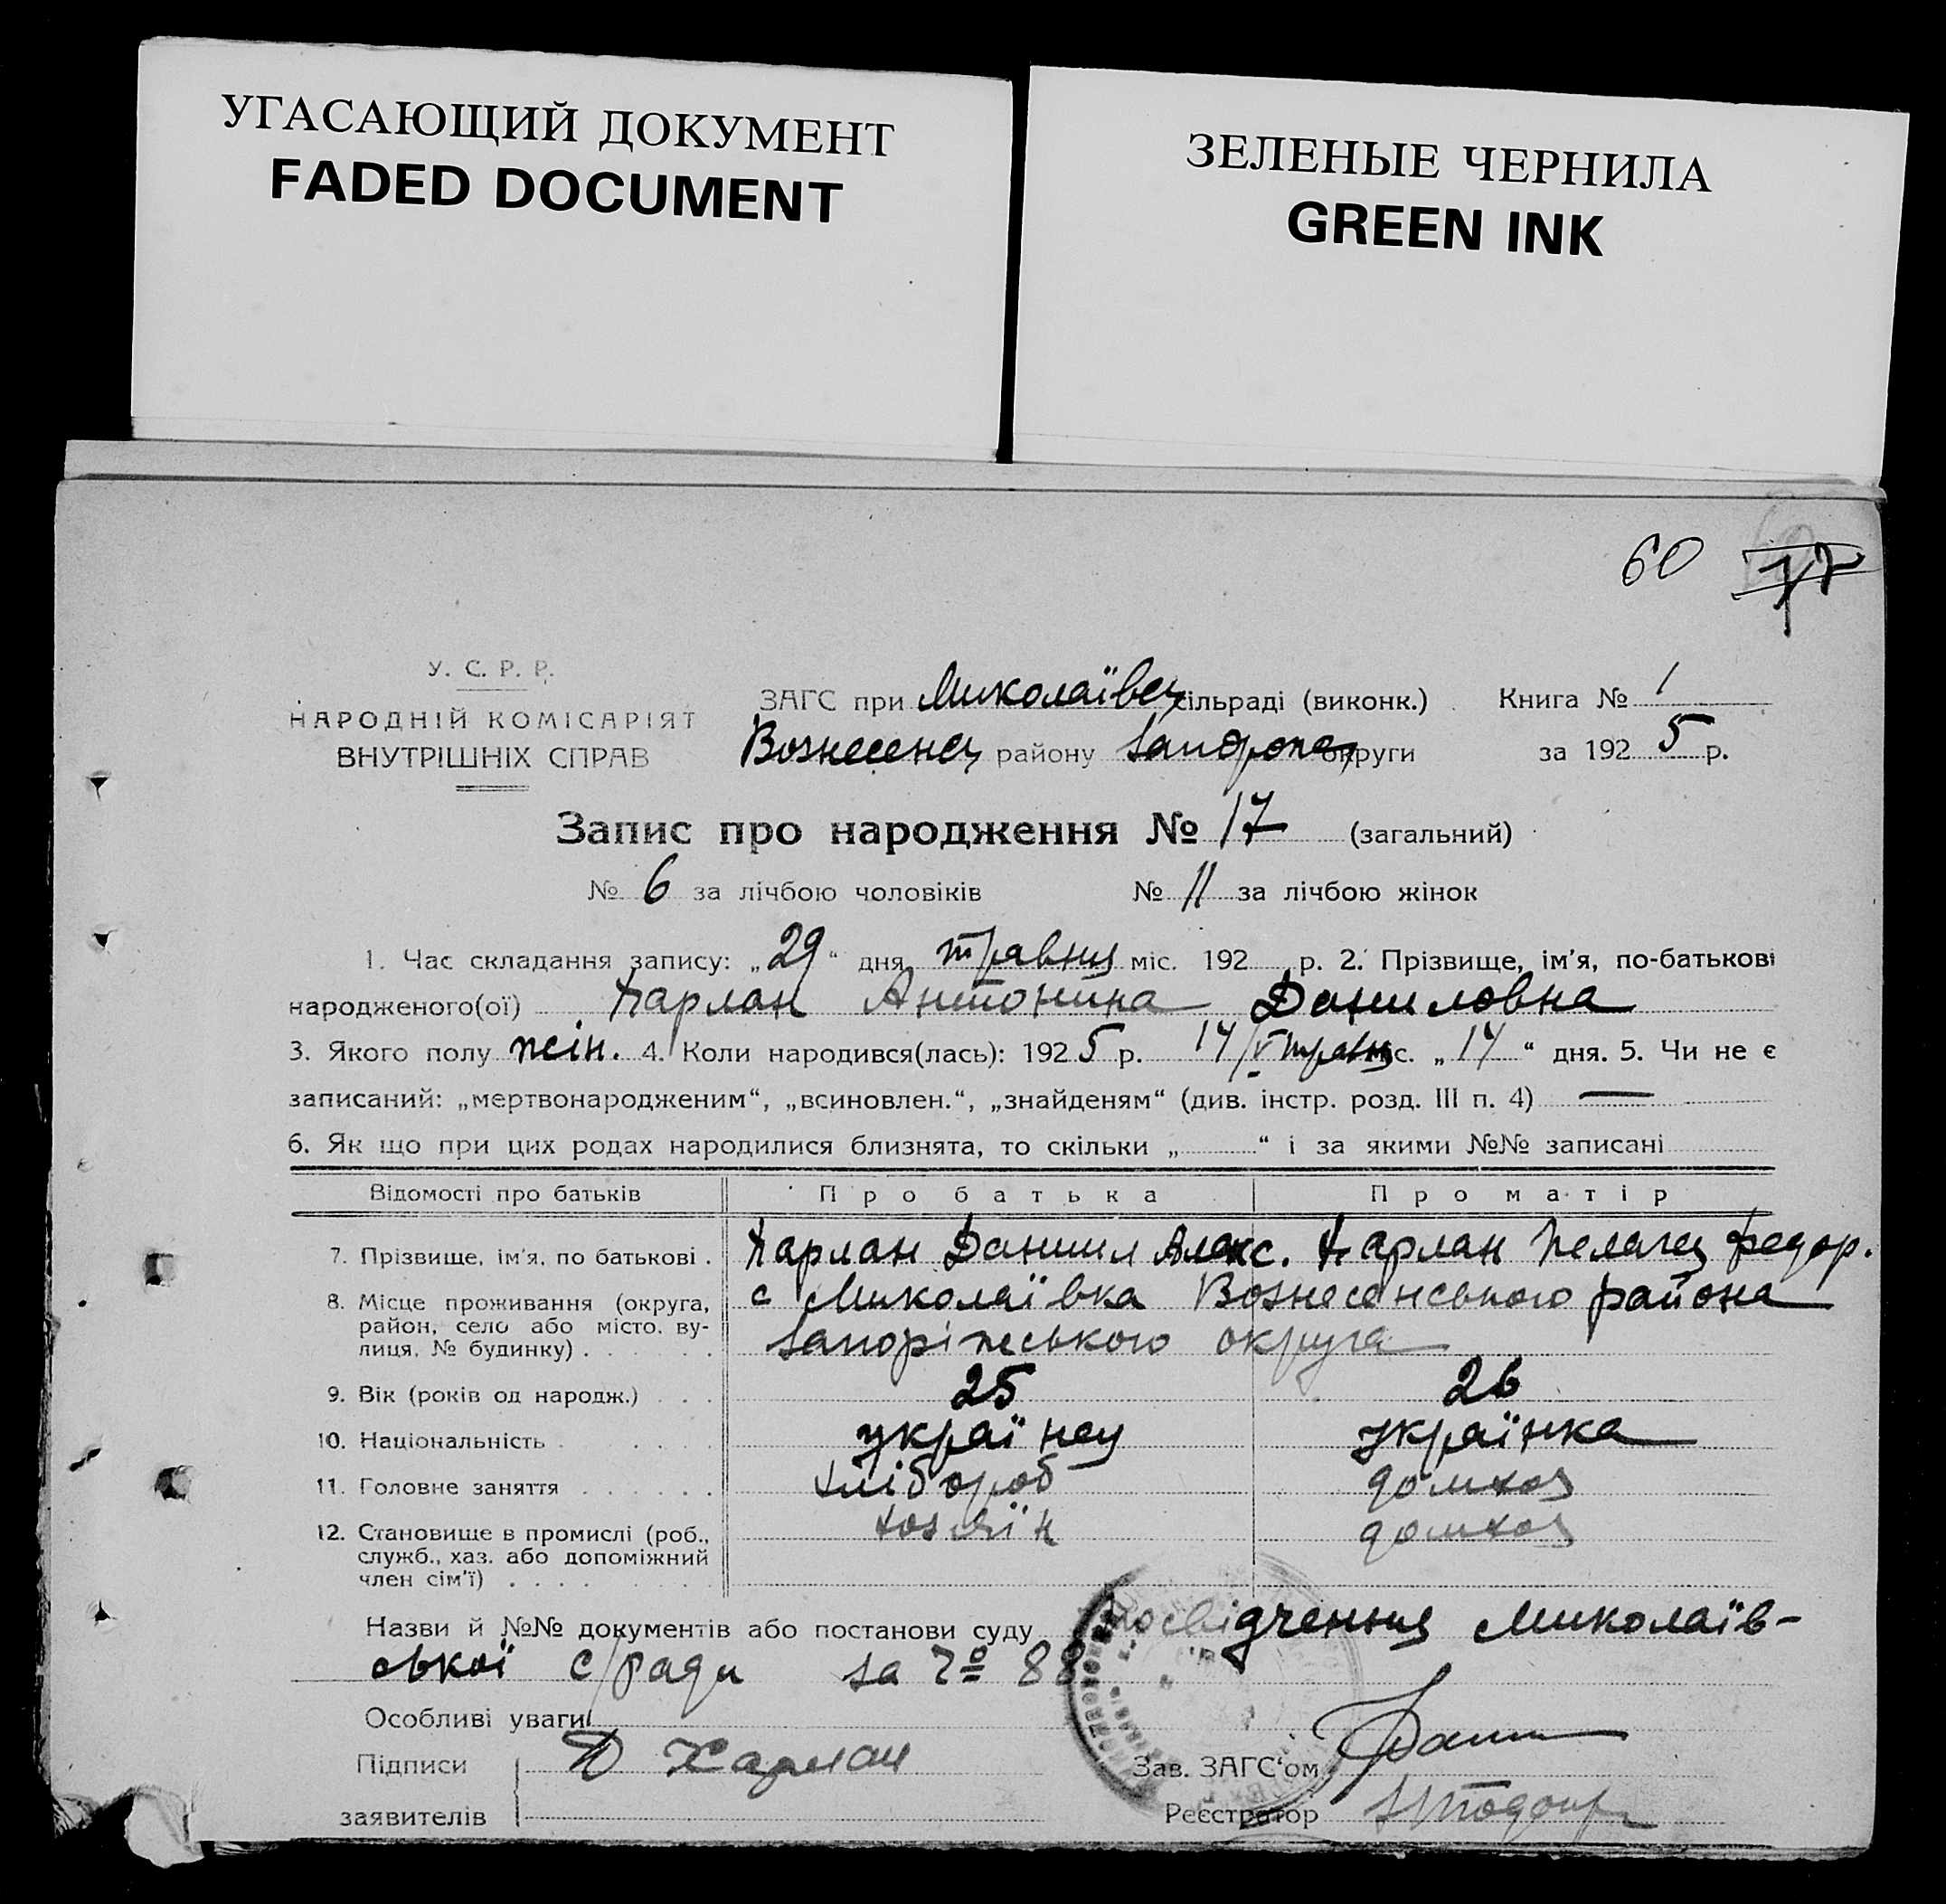 УГАСАЮЩИЙ ДОКУМЕНТ
FADED DOCUMENT
ЗЕЛЕНЫЕ ЧЕРНИЛА
GREEN INK
60
У. С. Р. Р.
НАРОДНІЙ КОМІСАРІЯТ
ВНУТРІШНІХ СПРАВ
ЗАГС при Миколаївск сільраді (виконк.) Книга № 1
Вознесенск району Запорож округи за 1925 р.
Запис про народження № 17 (загальний)
№ 6 за лічбою чоловіків № 11 за лічбою жінок
1. Час складання запису: „29“ дня травня міс. 192 р. 2. Прізвище, ім'я, по-батькові
народженого(ої) Харлан Антонина Даниловна
3. Якого полу жін. 4. Коли народився(лась): 1925 р. 14/V травня міс. „14“ дня. 5. Чи не є
записаний: „мертвонародженим“, „всиновлен.“, „знайденям“ (див. інстр. розд. III п. 4) —
6. Як що при цих родах народилися близнята, то скільки „ “ і за якими №№ записані
Відомості про батьків Про батька Про матір
7. Прізвище, ім'я, по батькові . Харлан Даниил Алекс. Харлан Пелагея Федор.
8. Місце проживання (округа, с Миколаївка Вознесенського района
район, село або місто, ву-
лиця, № будинку) . Запоріжського округа
9. Вік (років од народж.) 25 26
10. Національність українец українка
11. Головне заняття хлібороб домхоз
12. Становище в промислі (роб., хозяїн домхоз
служб., хаз. або допоміжний
член сім'ї)
Назви й №№ документів або постанови суду посвідчення Миколаїв-
ської с/ради за № 88
Особливі уваги
Підписи Д Харлан Зав. ЗАГС'ом
заявителів Реєстратор